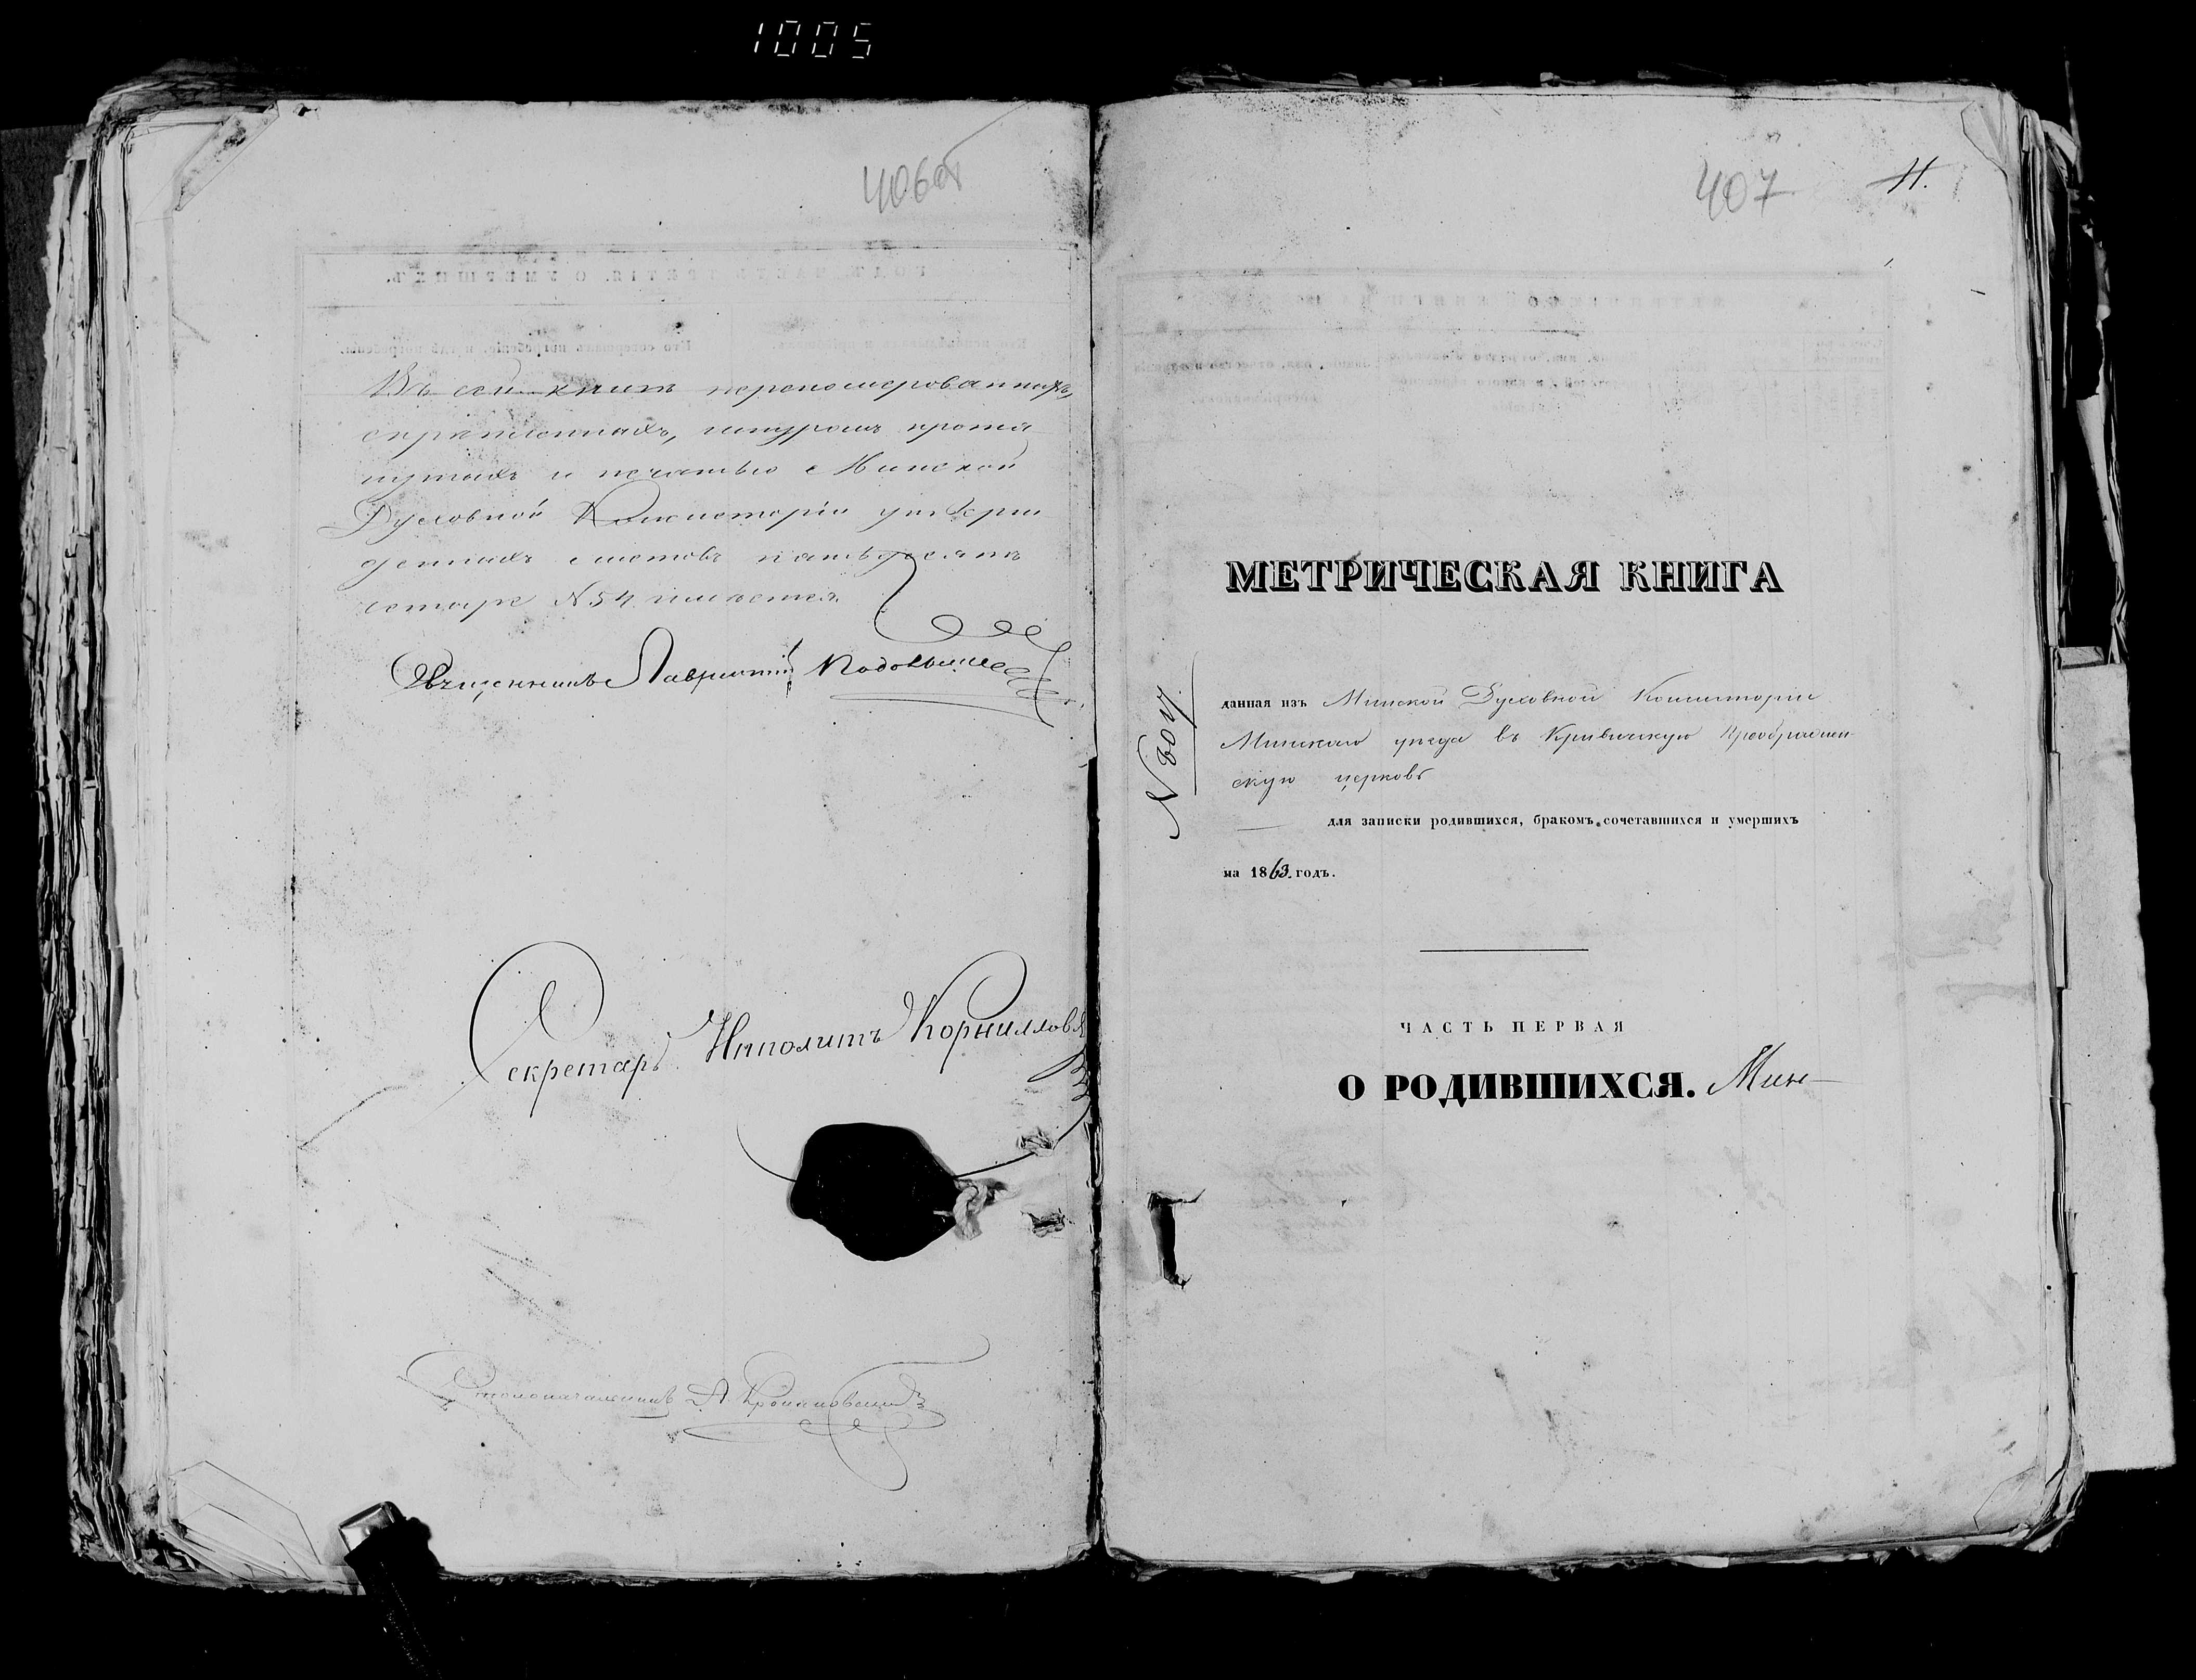 1005
406об
Въ сей книгѣ перенумерованныхъ,
скрѣпленныхъ, шнуромъ протя
нутыхъ и печатью Минской
Духовной Консисторіи утверж
денныхъ листовъ пятьдесятъ
четыре N 54. имѣется.
Священникъ Лаврентій
Секретарь Ипполитъ Корнилловъ
Столоначальникъ А.
407 11.
МЕТРИЧЕСКАЯ КНИГА
N 804.
данная изъ Минской Духовной Консисторіи
Минскаго уѣзда въ Кривичскую Преображен-
скую церковь
для записки родившихся, бракомъ сочетавшихся и умершихъ
на 1863. годъ.
ЧАСТЬ ПЕРВАЯ
О РОДИВШИХСЯ. Мин-